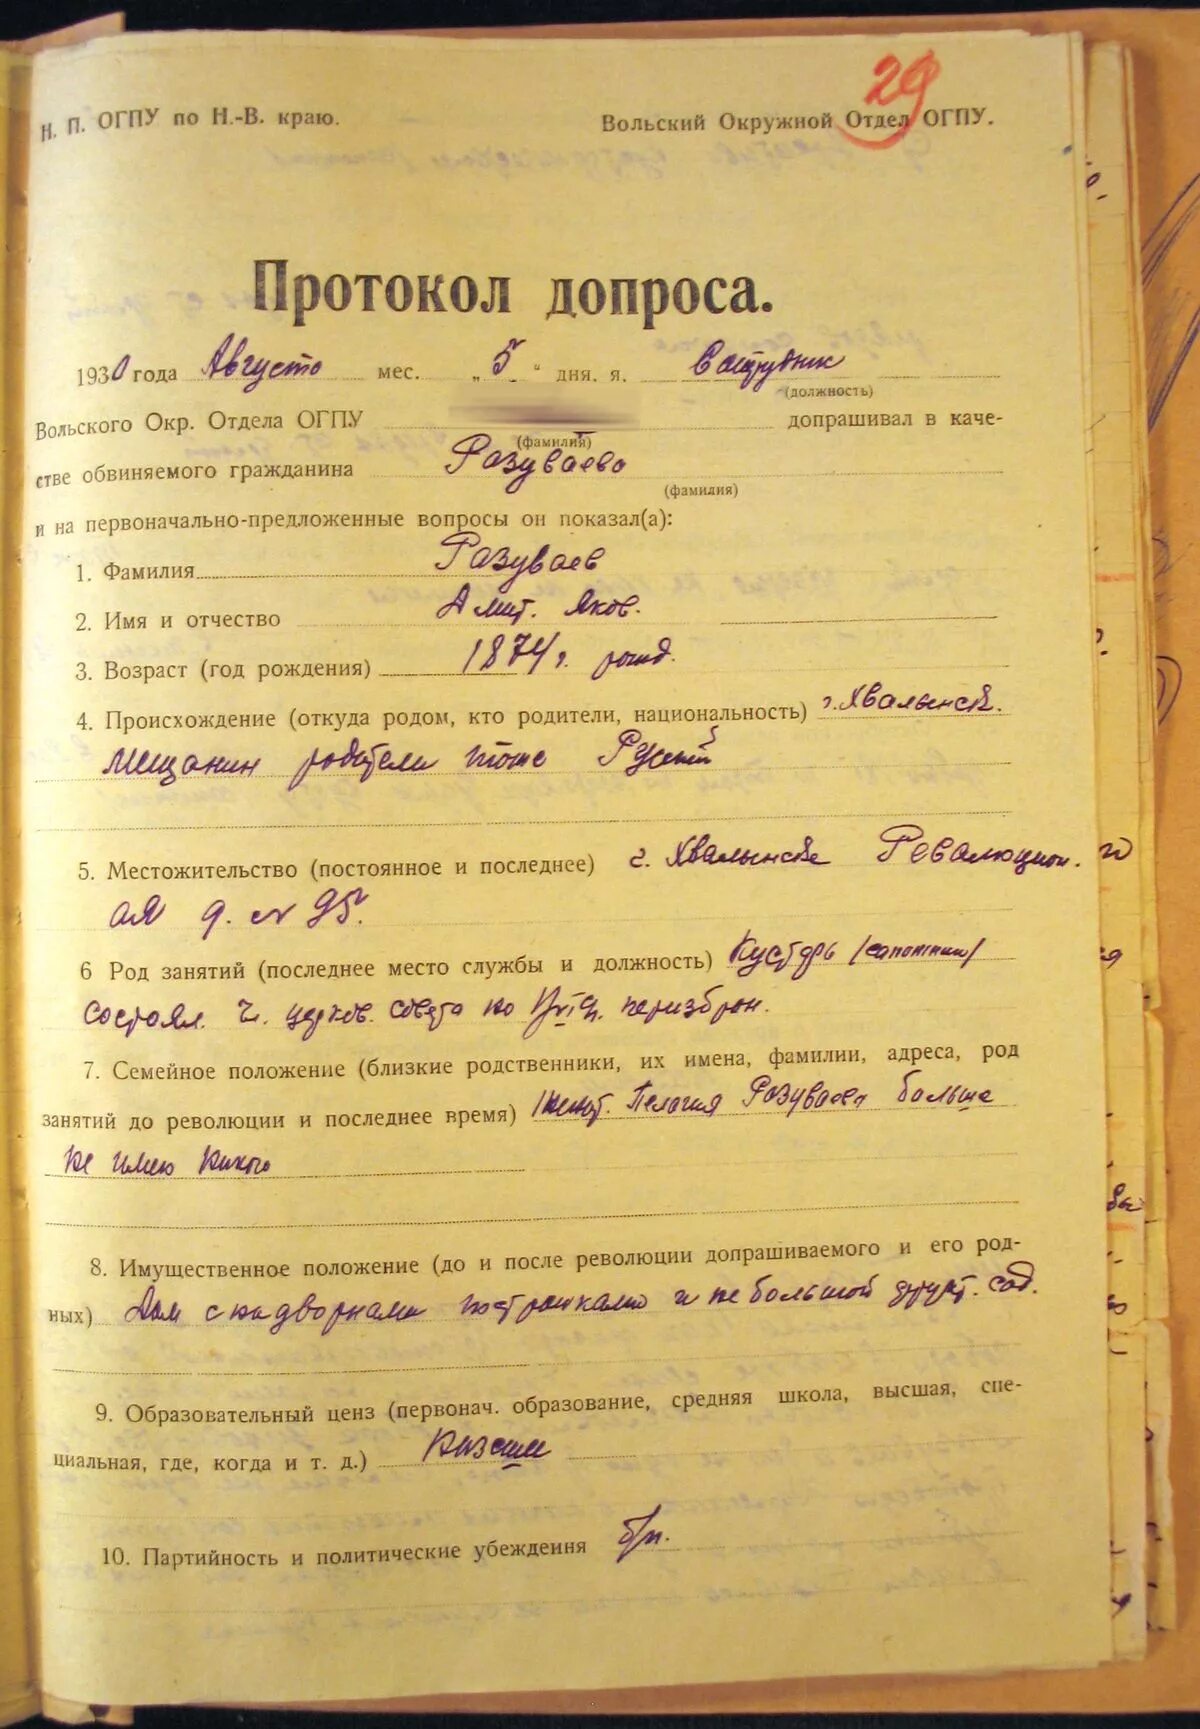 29
Н. П. ОГПУ по Н.-В. краю.
Вольский Окружной Отдел ОГПУ.
Протокол допроса.
1930 года Августа мес. „ 5 " дня. я. Сотрудник
(должность)
Вольского Окр. Отдела ОГПУ допрашивал в каче-
(фамилия)
стве обвиняемого гражданина Разуваева
(фамилия)
и на первоначально-предложенные вопросы он показал(а):
1. Фамилия Разуваев
2. Имя и отчество Дмит. Яков.
3. Возраст (год рождения) 1874 г. рожд.
4. Происхождение (откуда родом, кто родители, национальность) г. Хвалынск.
Мещанин родители тоже Русский
5. Местожительство (постоянное и последнее) г. Хвалынске Революцион.
ая д. № 95.
6 Род занятий (последнее место службы и должность) Кустарь (сапожник)
состоял. Чл. церков. совета по перизбран.
7. Семейное положение (близкие родственники, их имена, фамилии, адреса, род
занятий до революции и последнее время) Пелагия Разуваева больше
не имею никого
8. Имущественное положение (до и после революции допрашиваемого и его род-
ных) Дом с надворными постройками и не большой фрукт. сад.
9. Образовательный ценз (первонач. образование, средняя школа, высшая, спе-
циальная, где, когда и т. д.) низшее
10. Партийность и политические убеждения б/п.